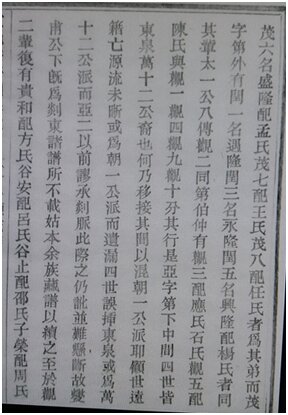 茂六名盛隆配孟氏茂七配王氏茂八配任氏者爲其弟而茂
字第外有閏一名遇隆閏三名永隆閏五名興隆配楊氏者同
其輩太一公八傳觀二同第伯仲有觀三配應氏石氏觀五配
陳氏與觀一觀四觀九觀十分其行是亞字第下中間四世皆
東泉萬十二公裔也何乃移接其間以混朝一公派耶顧世遠
籍亡源流未晰或爲朝一公派而遺漏四世誤揷東泉或爲萬
十二公派而亞二以前謬承剡脈此際之仍訛並難懸斷故變
甫公下旣爲剡東譜所不載姑本余族藏譜以續之至於觀
二輩復有貴和配方氏谷安配呂氏谷止配邵氏子榮配周氏